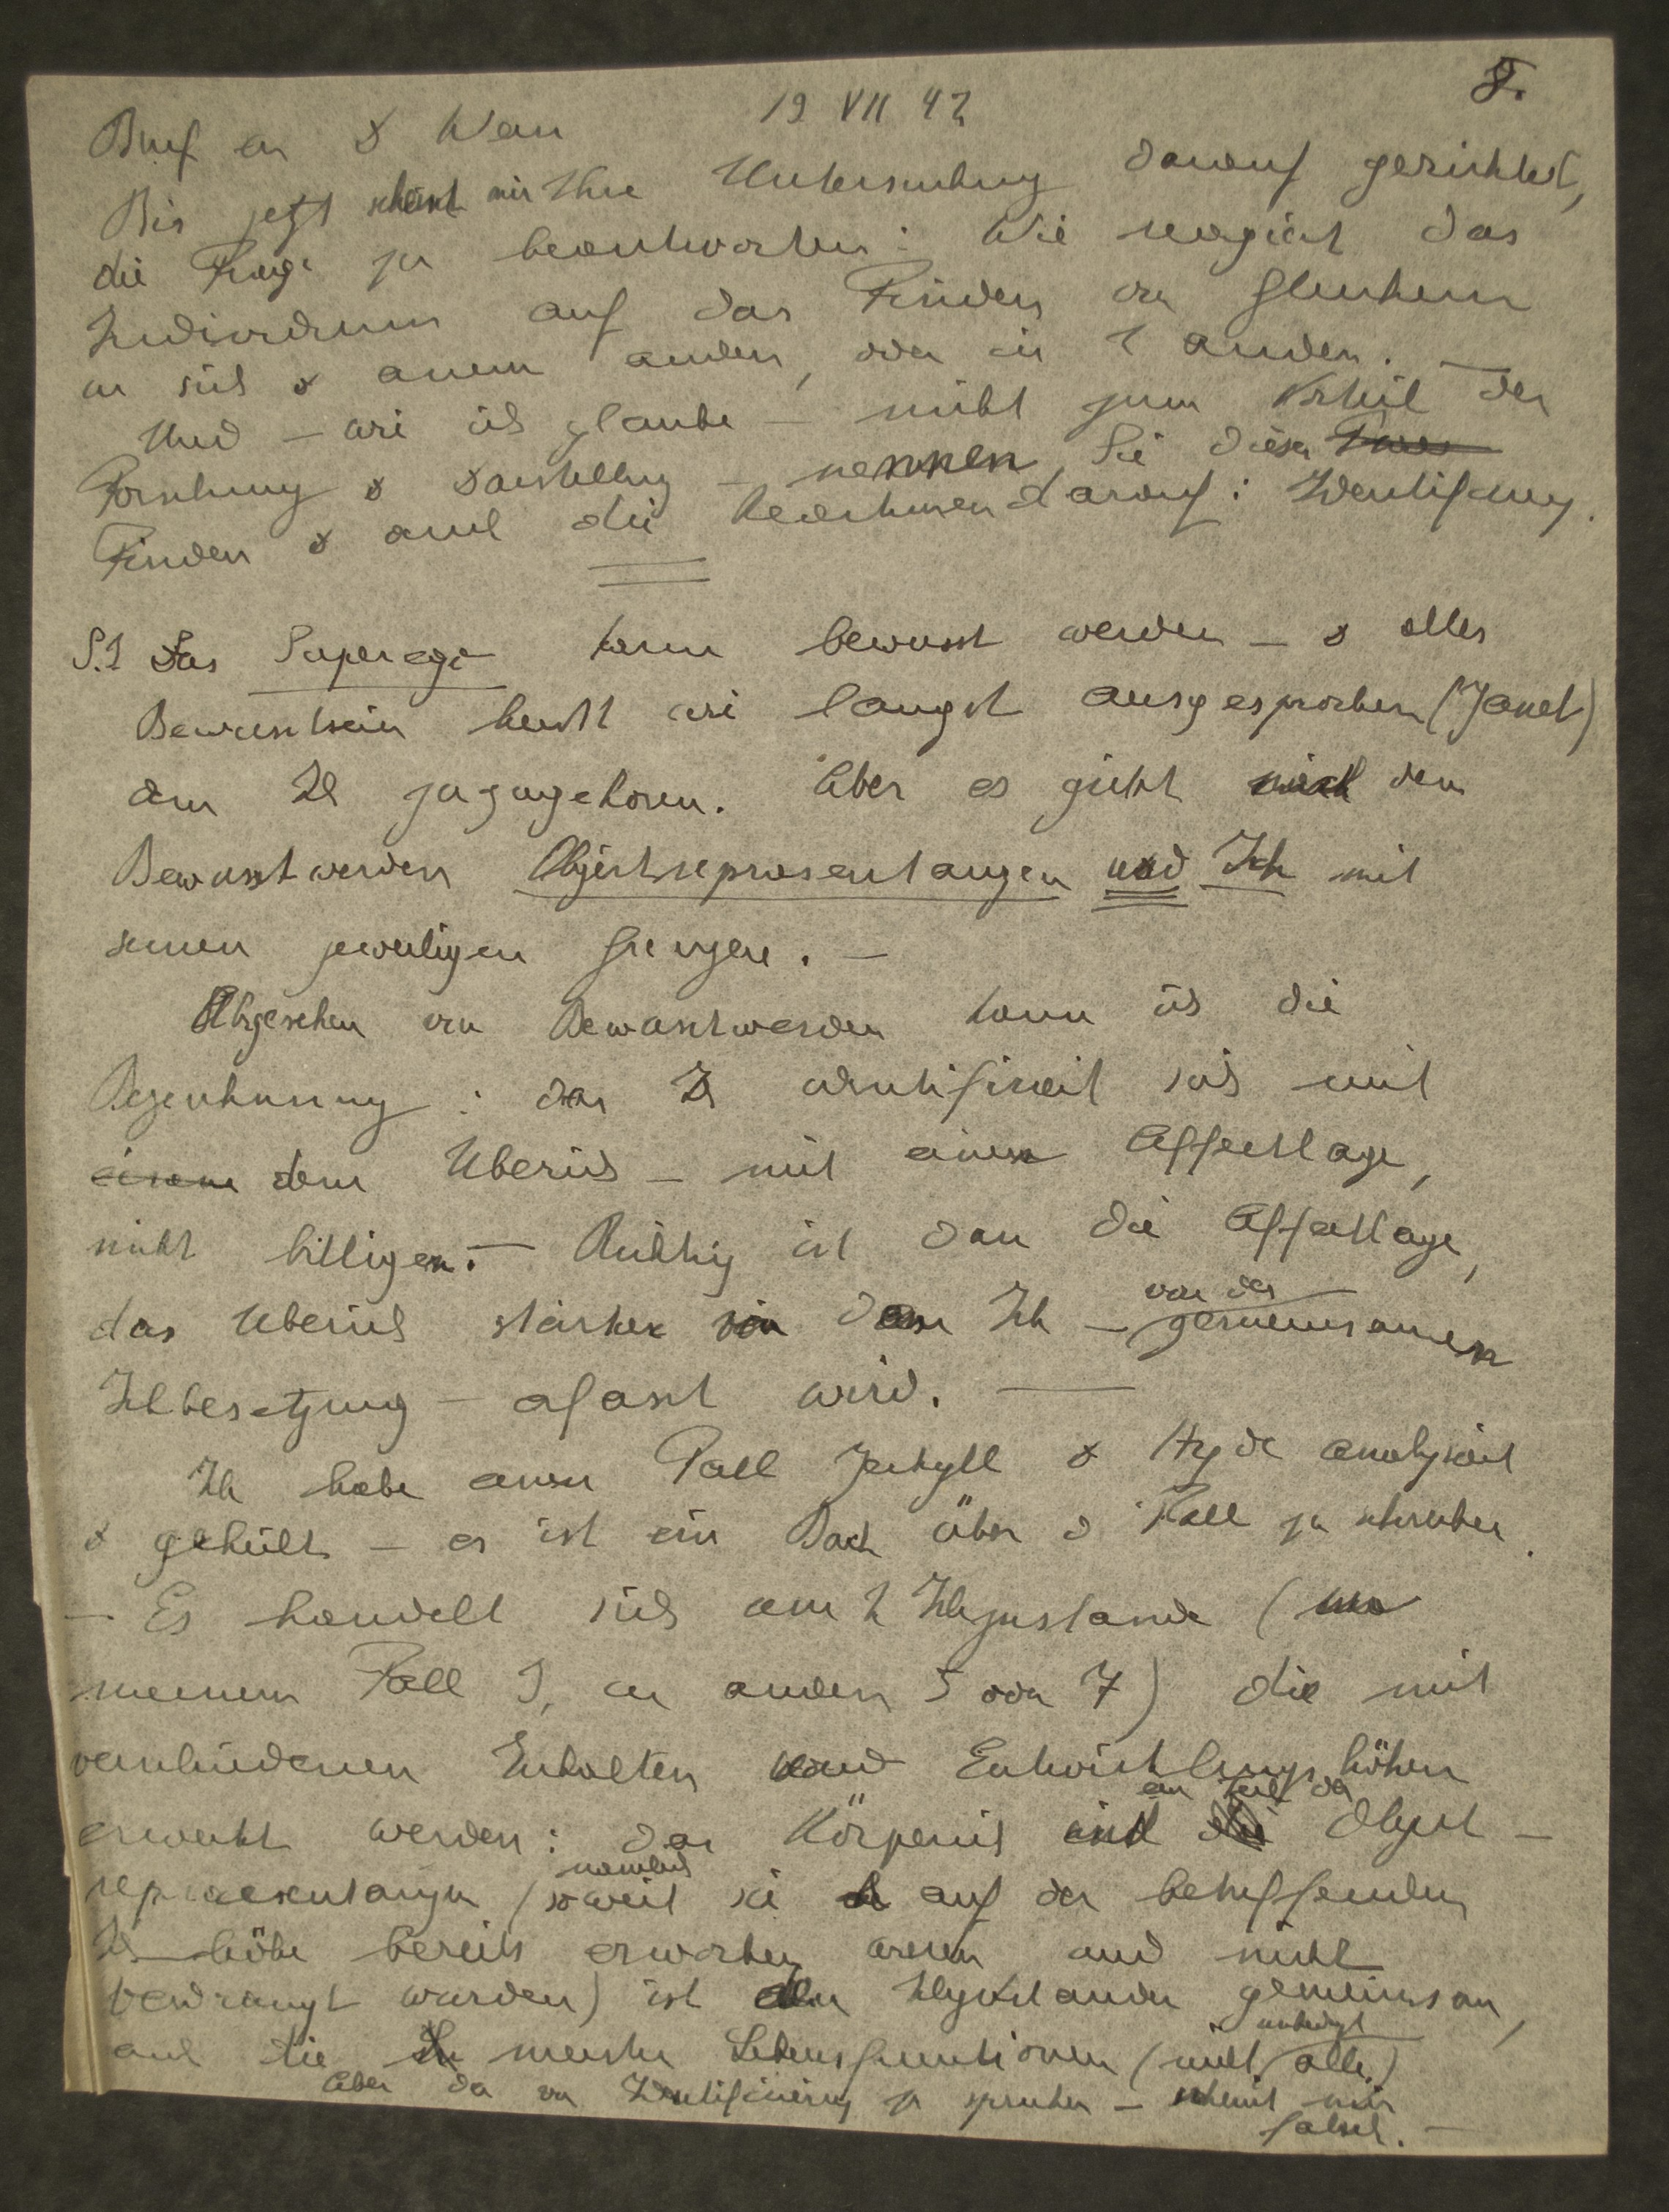 19 VII 42
Brief an
Bis jetzt scheint mir Ihre Untersuchung darauf gerichtet,
die Frage zu beantworten: Wie reagiert das
Individuum auf das Finden von Gleichem
an sich & einem andern, oder in 1 andern. —
Und — wie ich glaube — nicht zum Vorteil der
Forschung & Darstellung — nennen Sie dieses
Finden & auch die darauf: Identifizierung.
S.1 Das Superego kann bewusst werden — & alles
Bewusstsein heisst wie längst ausgesprochen (Janet)
dem Ich zuzugehören. Aber es giebt nach dem
Bewusstwerden Objectrepresentanzen und Ich mit
seinen jeweiligen Grenzen. —
Abgesehen von Bewusstwerden kann ich die
Bezeichnung: das Ich identifiziert sich mit
einem dem Überich — mit einer Affectlage,
nicht billigen. — Richtig ist dass die Affectlage,
das Überich stärker von dem Ich — von der gemeinsamen
Ichbesetzung — erfasst wird. —
Ich habe einen Fall Jeckyll & Hyde analysiert
& geheilt — es ist ein Buch über d Fall zu schreiben.
— Es handelt sich um 2 Ichzustände (
meinem Fall 3, in andern 5 oder 7) die mit
verschiedenen Inhalten und Entwicklungshöhen
erweckt werden: das Körperich und ein Teil der Object-
representanzen (nämlich soweit sie auf der betreffenden
Ichhöhe bereits erworben waren und nicht
verdrängt wurden) ist den Ichzuständen gemeinsam,
auch die meisten Lebensfunctionen (nicht unbedingt alle.)
Aber da von Identifizierung zu sprechen — scheint mir
falsch. —